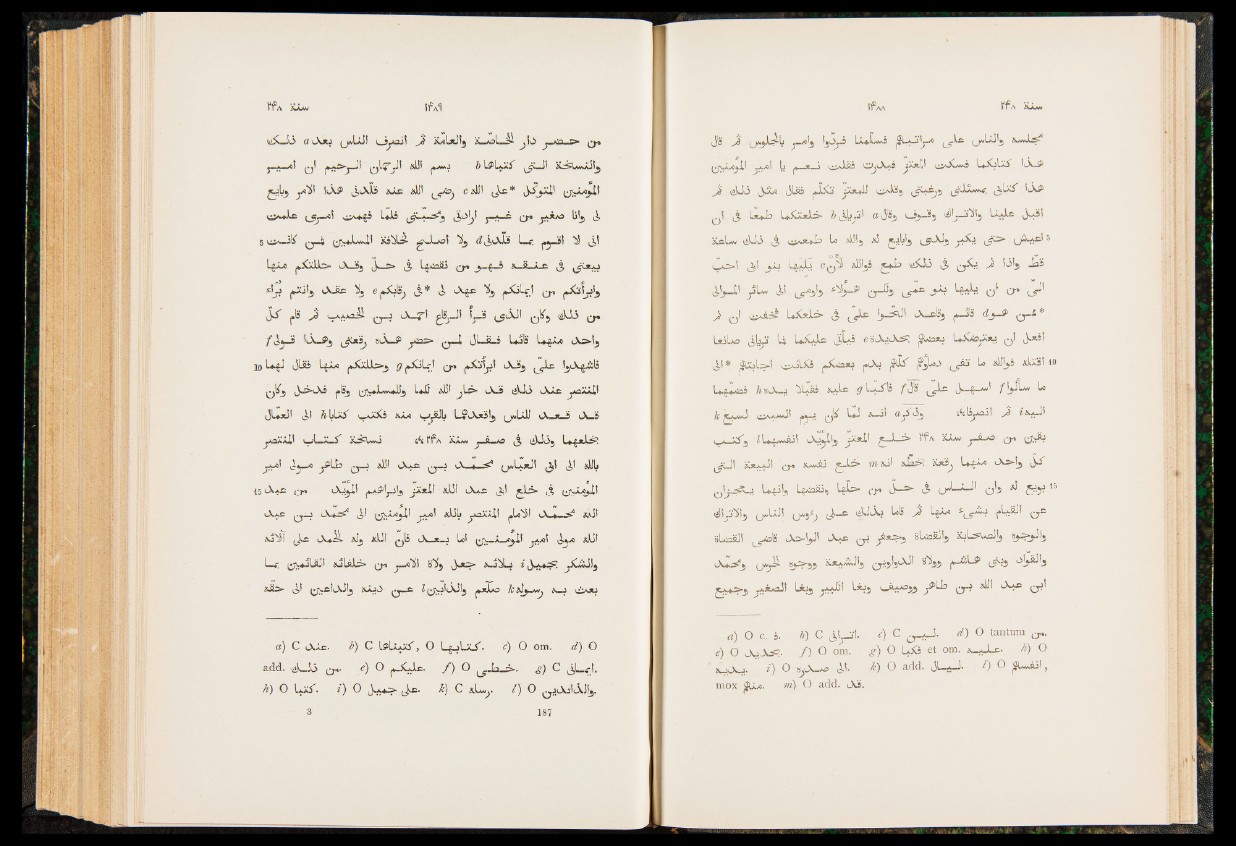 سنة ٢٤٨ ١٤٨٨
مجلسه والناس على مراتبهم فسلّما فردّوا وامر بالجلوس ثم قال
هذا كتابكما فسكت المعتزّ فبدرت فقلت نعم يا امير المؤمنين
هذا كتابى بمسئلتى ورغبتى وقلت للمعتزّ تكلّم فقال مثل ذلك ثم
اقبل علينا والاتراك وقوف وقال a اترانى b خلعتكما طمعًا فى ان
5 اعيش حتى يكبر ولدى وابايع له والله ما طمعت فى ذلك ساعة
قطّ واذا لم يكن فى ذلك طمع فوالله لأنّ c يليها بنو ابى احبّ
الىّ من ان يليها بنو عمّى ولكن هؤلاء واومى الى سائر الموالى
*ممن هو d قائم وقاعد الحّوا علىّ فى خلعكما فخفت ان لم
افعل ان يعترضكما بعضهم بحديدة e فيأتى عليكما فما ترياني صانعا
10 اقتله فوالله ما تفى دماؤهم كلّهم بدم بعضكم فكانت اجابتهم *الى
ما سألوا f اسهل علىّ قال f فاكبّا g عليه فقبّلا يده h فضمّهما
اليه i ثم انصرفا، وذكر a انه لمّا كان يوم السبت لسبع k
بقين من صفر سنة ٢٤٨ خلع المعتزّ والمؤيّد انفسهما l وكتب
كلّ واحد منهما رقعة بخطّه انه m خلع نفسه من البيعة التى
15 بويع له وان الناس فى حلّ من حلّها ونقضها وانهما يعجزان
عن القيام بشىء منها ثم قاما بذلك على رءوس الناس والاتراك
والوجوه والصحابة والقضاة وجعفر بن عبد الواحد قاضى القضاة
والقوّاد وبنى هاشم وولاة الدواوين والشيعة ووجوه الحرس ومحمّد
ابن عبد الله بن طاهر ووصيف وبغا الكبير وبغا الصغير وجميع
a) O c. ف. b) C اترانى. c) C ليس. d) O tantum من.
e) O بحديد. f) O om. g) O فكبا et om. عليه. h) O
يديه. i) O الى صدره. k) O add. ليال. l) O انفسهم,
mox منهم. m) O add. قد.
سنة ٢٤٨ ١٤٨٩
من حضر دار الخاصّة والعامّة ثم انصرف الناس بعد a ذلك
والنسخة التى كتباها b بسم الله الرحمن الرحيم ان امير
المؤمنين المتوكّل *على الله c رضى الله عنه قلّدنى هذا الامر وبايع
لى وانا صغير من غير ارادتى ومحبّتى فلمّا فهمت امرى علمت
5 انى لا اقوم بما قلّدنى d ولا اصلح لخلافة المسلمين فمن كانت
بيعتى فى عنقه فهو من نقضها فى حلّ وقد حللتكم منها
وابرأتكم من ايمانكم ولا عهد لى *فى رقابكم e ولا عقد وانتم بُرَآء
من ذلك وكان الذى قرأ الرقاع احمد بن الخصيب ثم قام كلّ
واحد منهما قائما فقال لمن حضر هذه رقعتى وهذا قولى f
10 فاشهدوا علىّ وقد ابرأتكم من ايمانكم g وحللتكم منها فقال لهما
المنتصر عند ذلك قد خار الله لكما وللمسلمين وقام فدخل وكان
قد قعد للناس واقعدهما بالقرب منه فكتب كتابا h الى العمّال
بخلعهما وذلك فى صفر سنة ٢٤٨، نسخة كتاب المنتصر
بالله الى ابى العبّاس محمّد بن عبد الله بن طاهر مولى امير
15 المؤمنين فى خلع ابى عبد الله المعتزّ وابراهيم المؤيّد من عبد
الله محمّد الامام المنتصر بالله امير المؤمنين الى محمّد بن عبد
الله مولى امير المؤمنين اما بعد فانّ الله وله الحمد على آلائه
والشكر بجميل i بلائه جعل ولاة الامر من خلفائه القائمين بما
بعث به رسوله k صلّعم والذابّين l عن دينه والداعين الى حقّه
a) C عند. b) C كتبناها, O كتابها. c) O om. d) O
add. من ذلك. e) O عليكم. f) O خطى. g) C ايمانى.
h) O كتبا. i) O على جميل. k) C رسله. l) O والذاندين.
3 187